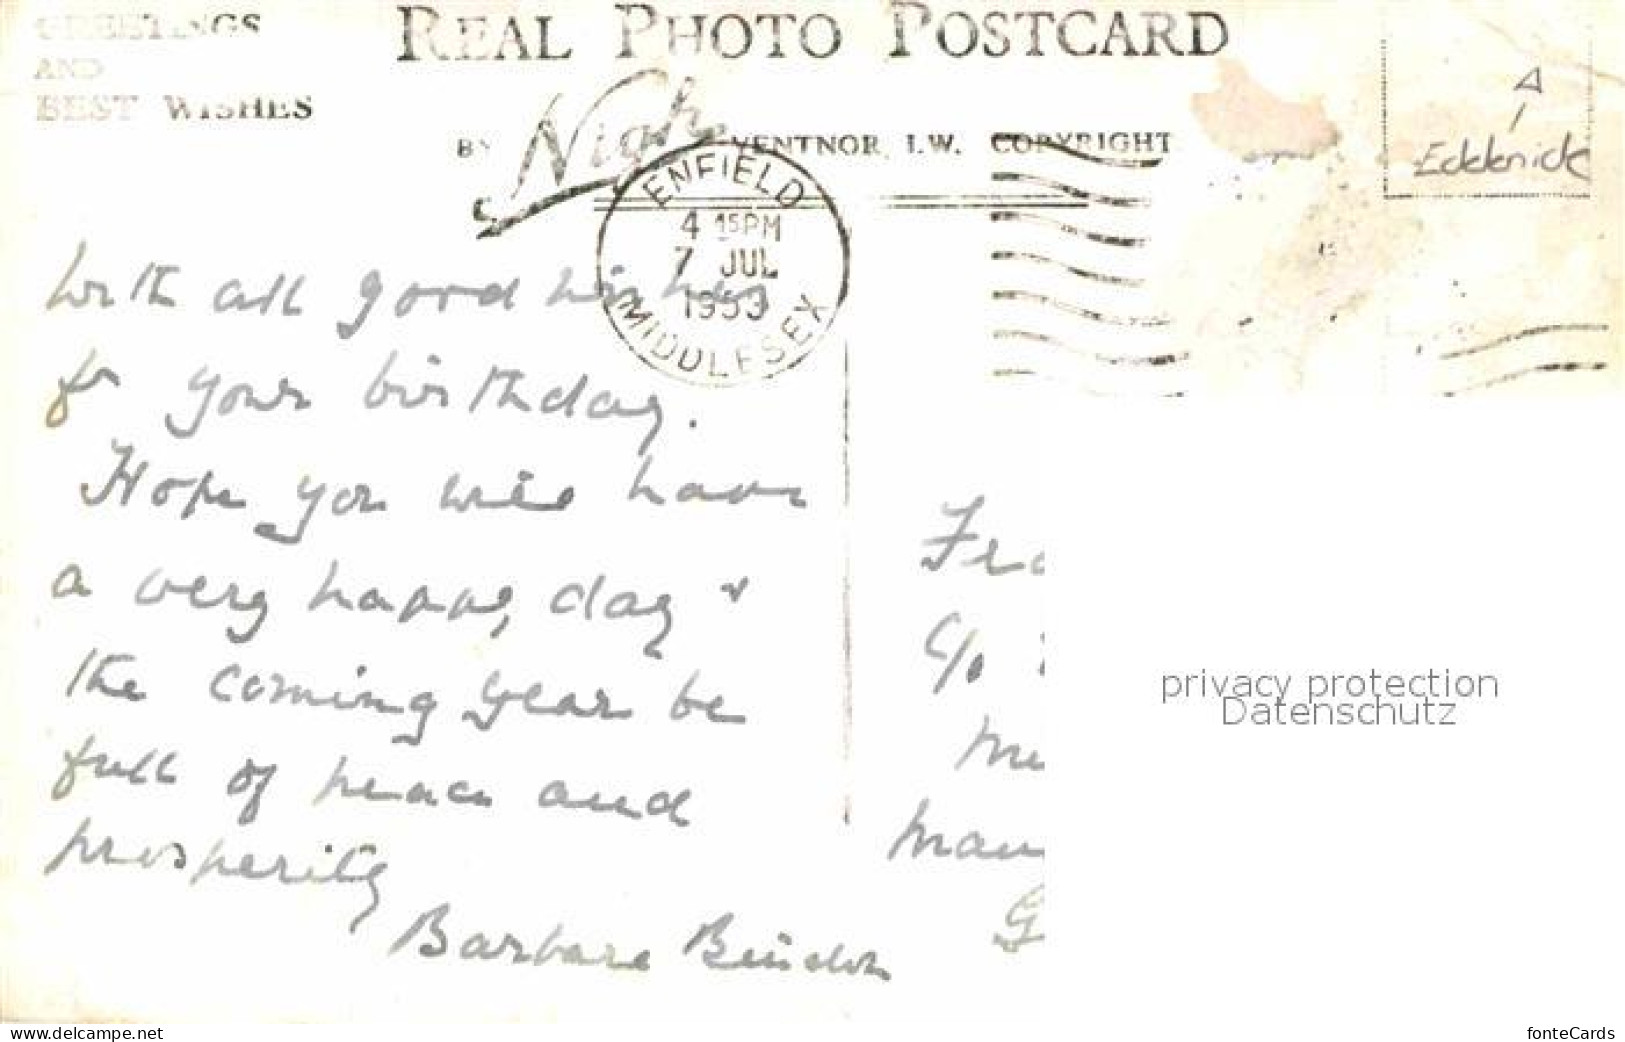 GREETINGS
AND
BEST WISHES
REAL PHOTO POSTCARD
BY Nigh VENTNOR, I.W. COPYRIGHT
A
ENFIELD
4 15PM
7 JUL
1953
MIDDLESEX
With all good wishes
for your birthday.
Hope you will have
a very happy day &
the coming year be
full of peace and
prosperity
Barbara
Fra
C/o
Man
G
privacy protection
Datenschutz
www.delcampe.net
fonteCards